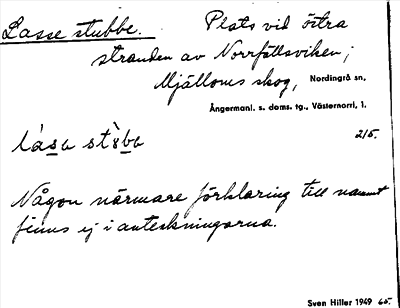 Lasse stubbe. Plats vid östra
stranden av Norrfällsviken;
Mjälloms skog, Nordingrå sn,
Ångermanl. s. doms. tg., Västernorrl. l.
làsa stÿba 2/5.
Någon närmare förklaring till namnet
finns ej i anteckningarna.
Sven Hiller 1949 60.